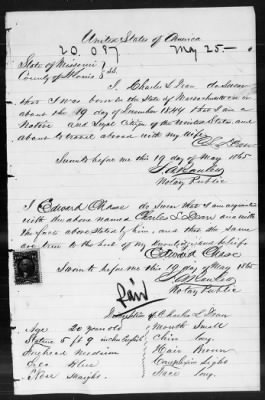 United States of America
20,087 May 25 -
State of Missouri
County of St Louis } SS.
I, Charles S. Dean do swear
that I was born in the State of Massachusetts on or
about the 19 day of December 1844 that I am a
Native and Legal Citizen of the United States, and
about to travel abroad with my wife
C. S. Dean
Sworn to before me this 19 day of May 1865
Notary Public
I Edward Chase do swear that I am acquainted
with the above named Charles S. Dean and with
the facts above stated by him, and that the same
are true to the best of my knowledge and belief
Edward Chase
Sworn to before me this 19 day of May 1865
Notary Public
Paid
Description of Charles S. Dean
Age 20 years old Mouth Small
Stature 5 ft 9 inches English Chin long
Forehead Medium Hair Brown
Eyes Blue Complexion Light
Nose Straight Face long